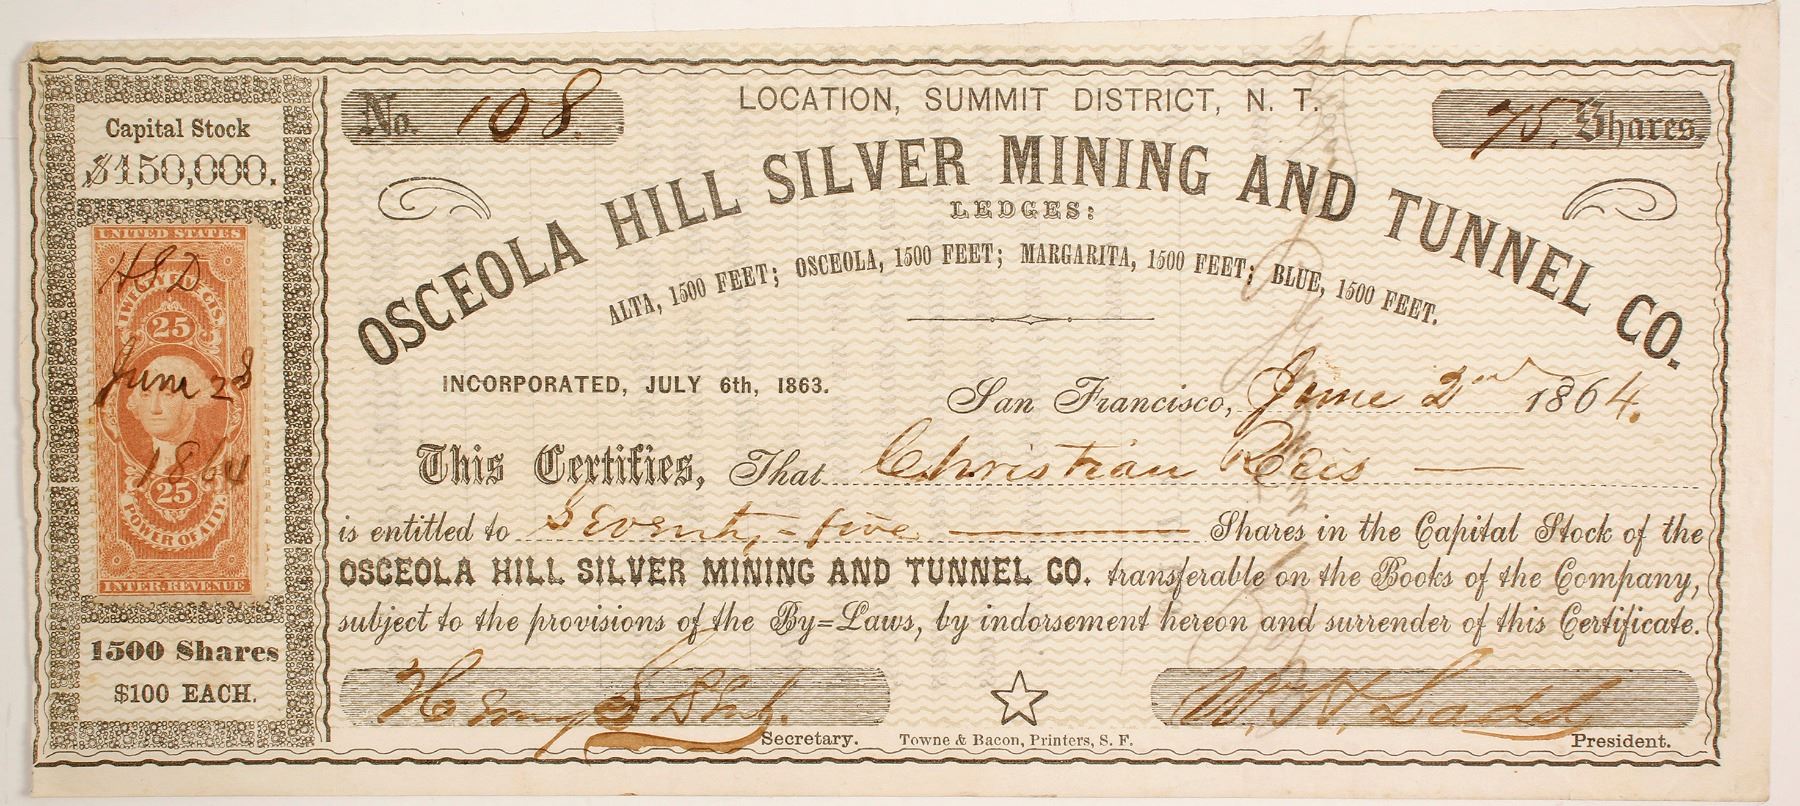 Capital Stock
$150,000.
UNITED STATES
H S D
25
June 28
1864
25
POWER OF AT'Y.
INTER. REVENUE
1500 Shares
$100 EACH.
No. 108.
LOCATION, SUMMIT DISTRICT, N. T.
75. Shares.
OSCEOLA HILL SILVER MINING AND TUNNEL CO.
LEDGES:
ALTA, 1500 FEET; OSCEOLA, 1500 FEET; MARGARITA, 1500 FEET; BLUE, 1500 FEET.
INCORPORATED, JULY 6th, 1863.
San Francisco, June 2nd 1864.
This Certifies, That Christian Reis
is entitled to Seventy-five Shares in the Capital Stock of the
OSCEOLA HILL SILVER MINING AND TUNNEL CO. transferable on the Books of the Company,
subject to the provisions of the By=Laws, by indorsement hereon and surrender of this Certificate.
Henry S
Secretary.
Towne & Bacon, Printers, S. F.
W. H. Ladd
President.